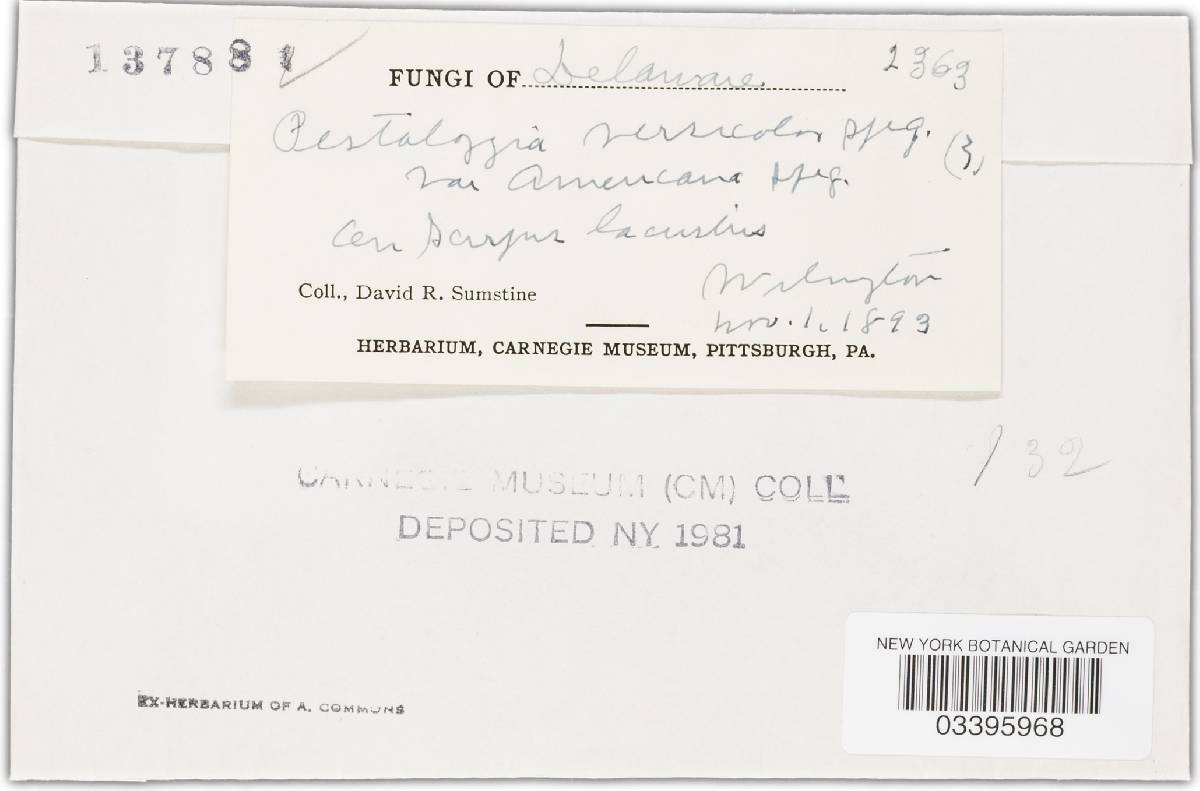 137881
FUNGI OF Delaware 2363
Pestalozzia versicolor Speg. (3)
var Americana Speg.
On Scirpus lacustris
Wilmington
Coll., David R. Sumstine
Nov. 1, 1893
HERBARIUM, CARNEGIE MUSEUM, PITTSBURGH, PA.
132
CARNEGIE MUSEUM (CM) COLL
DEPOSITED NY 1981
NEW YORK BOTANICAL GARDEN
03395968
EX-HERBARIUM OF A. COMMONS